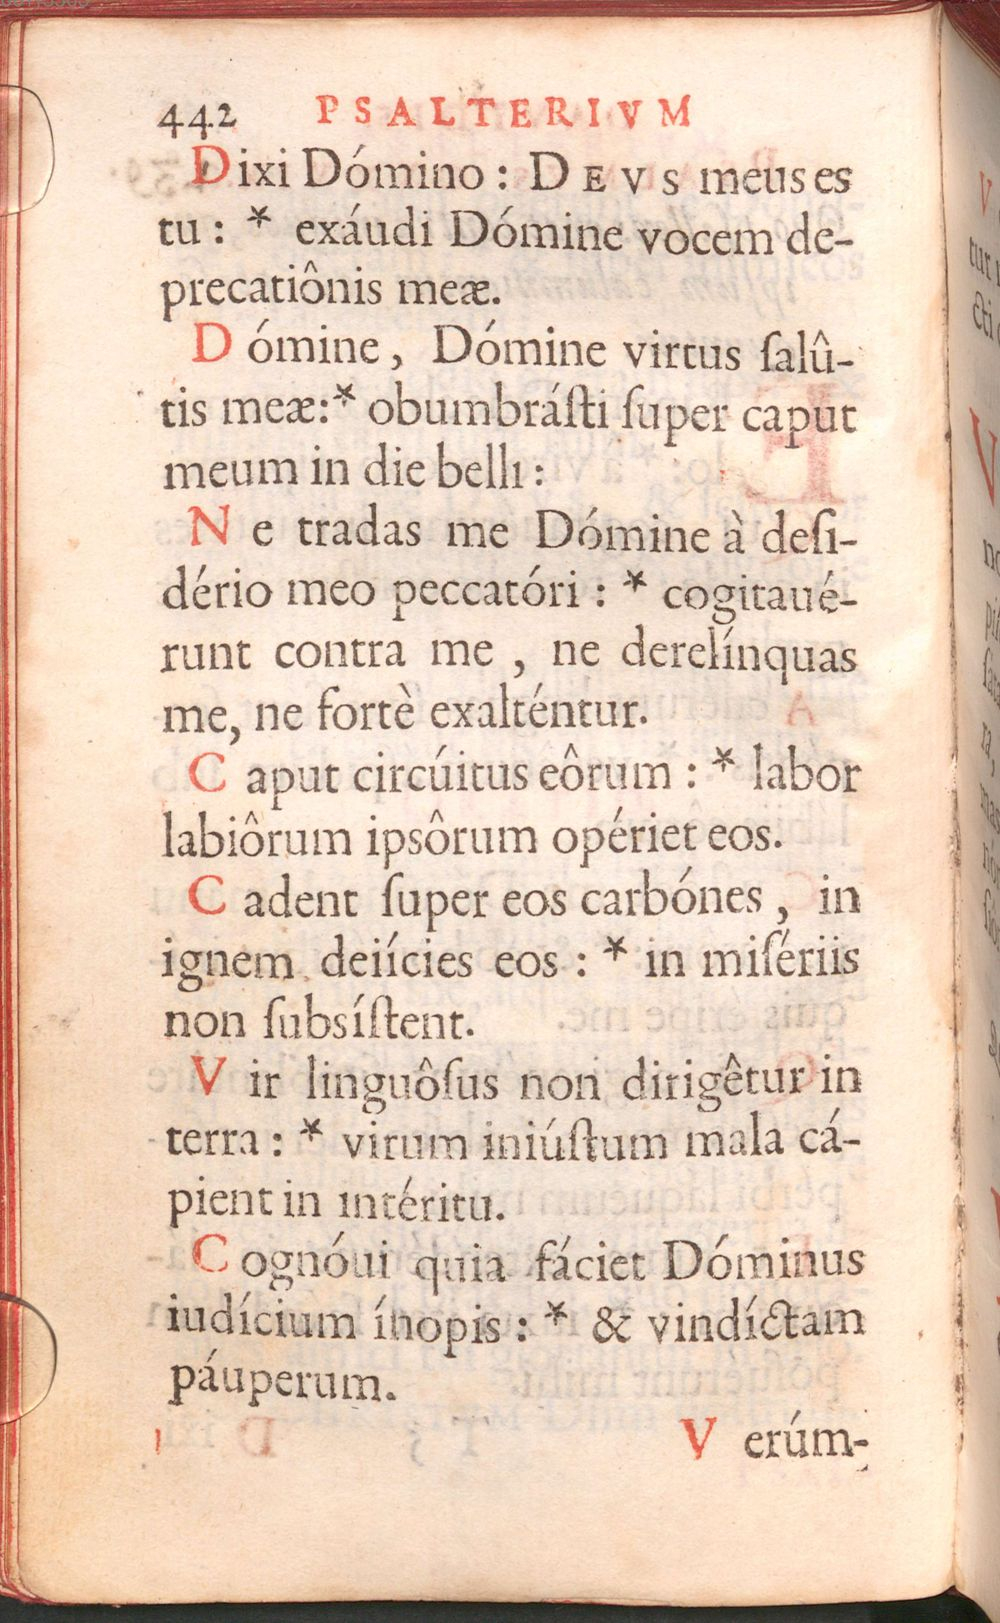 442 PSALTERIVM
Dixi Dómino : DEVS meus es
tu : * exáudi Dómine vocem de-
precatiônis meæ.
Dómine, Dómine virtus ſalû-
tis meæ:* obumbráſti ſuper caput
meum in die belli :
Ne tradas me Dómine à deſi-
dério meo peccatóri : * cogitaué-
runt contra me , ne derelínquas
me, ne fortè exalténtur.
Caput circúitus eôrum : * labor
labiôrum ipsôrum opériet eos.
Cadent ſuper eos carbónes , in
ignem deiícies eos : * in miſériis
non ſubsíſtent.
Vir linguôſus non dirigêtur in
terra : * virum iniúſtum mala cá-
pient in intéritu.
Cognóui quia fáciet Dóminus
iudícium ínopis : * & vindíctam
páuperum.
Verúm-